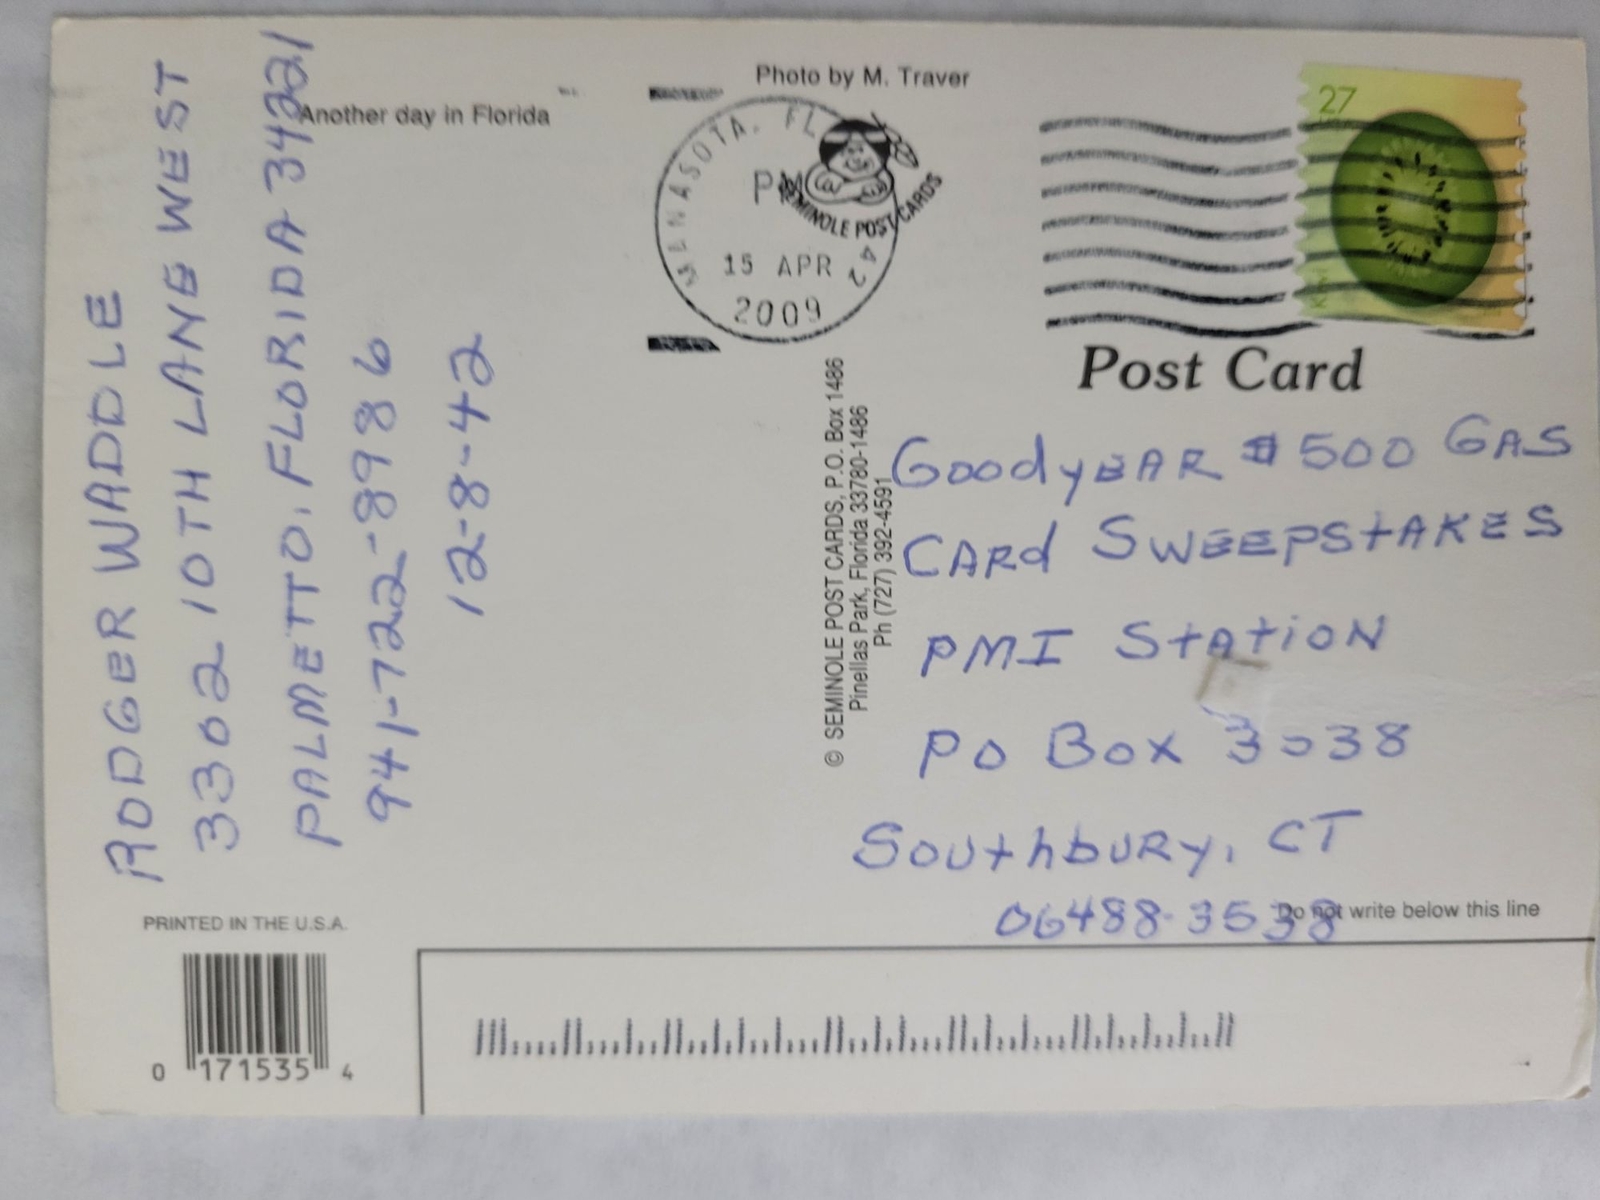 Another day in Florida
Photo by M. Traver
RODGER WADDLE
3302 10TH LANE WEST
PALMETTO, FLORIDA 34221
941-722-8986
12-8-42
MANASOTA, FL 342
PM
15 APR
2009
SEMINOLE POST CARDS
27
KIWI
Post Card
© SEMINOLE POST CARDS, P.O. Box 1486
Pinellas Park, Florida 33780-1486
Ph (727) 392-4591
GoodyBAR $500 GAS
CARd SWEEPStAKES
PMI StAtiON
PO Box 3538
SouthbuRy, CT
06488-3538
Do not write below this line
PRINTED IN THE U.S.A.
0 171535 4